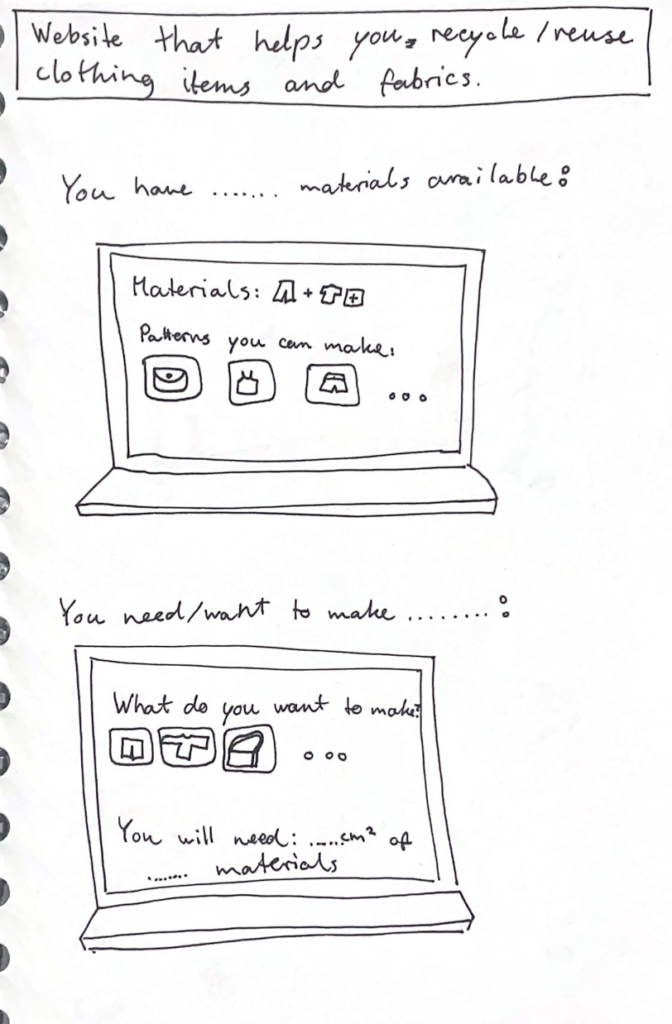 Website that helps you recycle/reuse
clothing items and fabrics.
You have ....... materials available:
Materials: +
Patterns you can make:
You need/want to make ........:
What do you want to make?
You will need: ......cm² of
........ materials